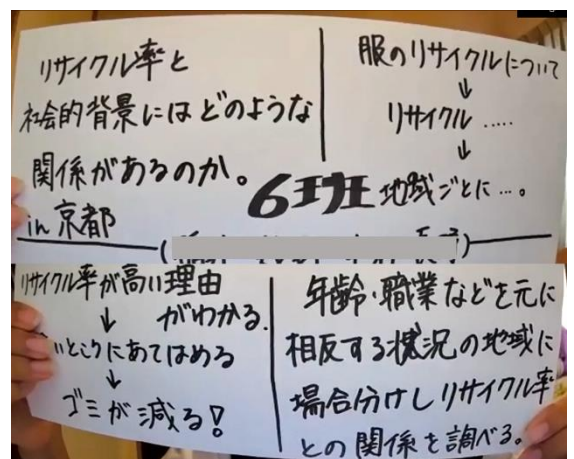 リサイクル率と
社会的背景にはどのような
関係があるのか。
in 京都
服のリサイクルについて
↓
リサイクル.....
↓
地域ごとに...。
6班
リサイクル率が高い理由
がわかる.
↓
いところにあてはめる
↓
ゴミが減る!
年齢・職業などを元に
相反する状況の地域に
場合分けしリサイクル率
との関係を調べる。